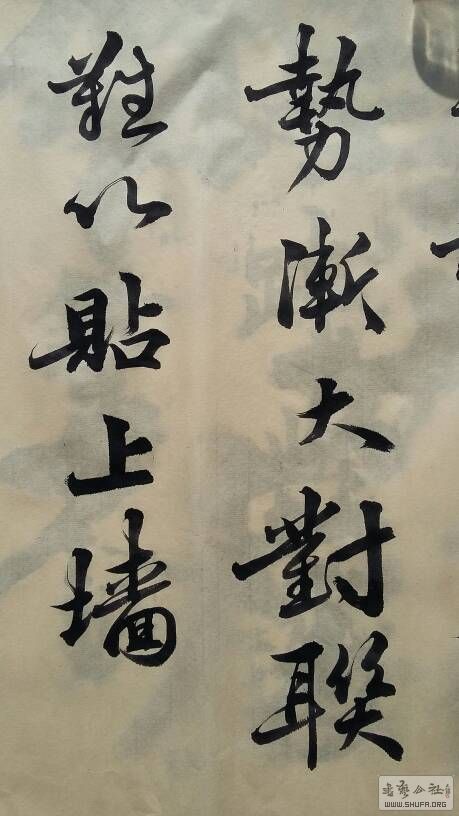 勢漸大對聯
難以貼上墙
WWW.SHUFA.ORG